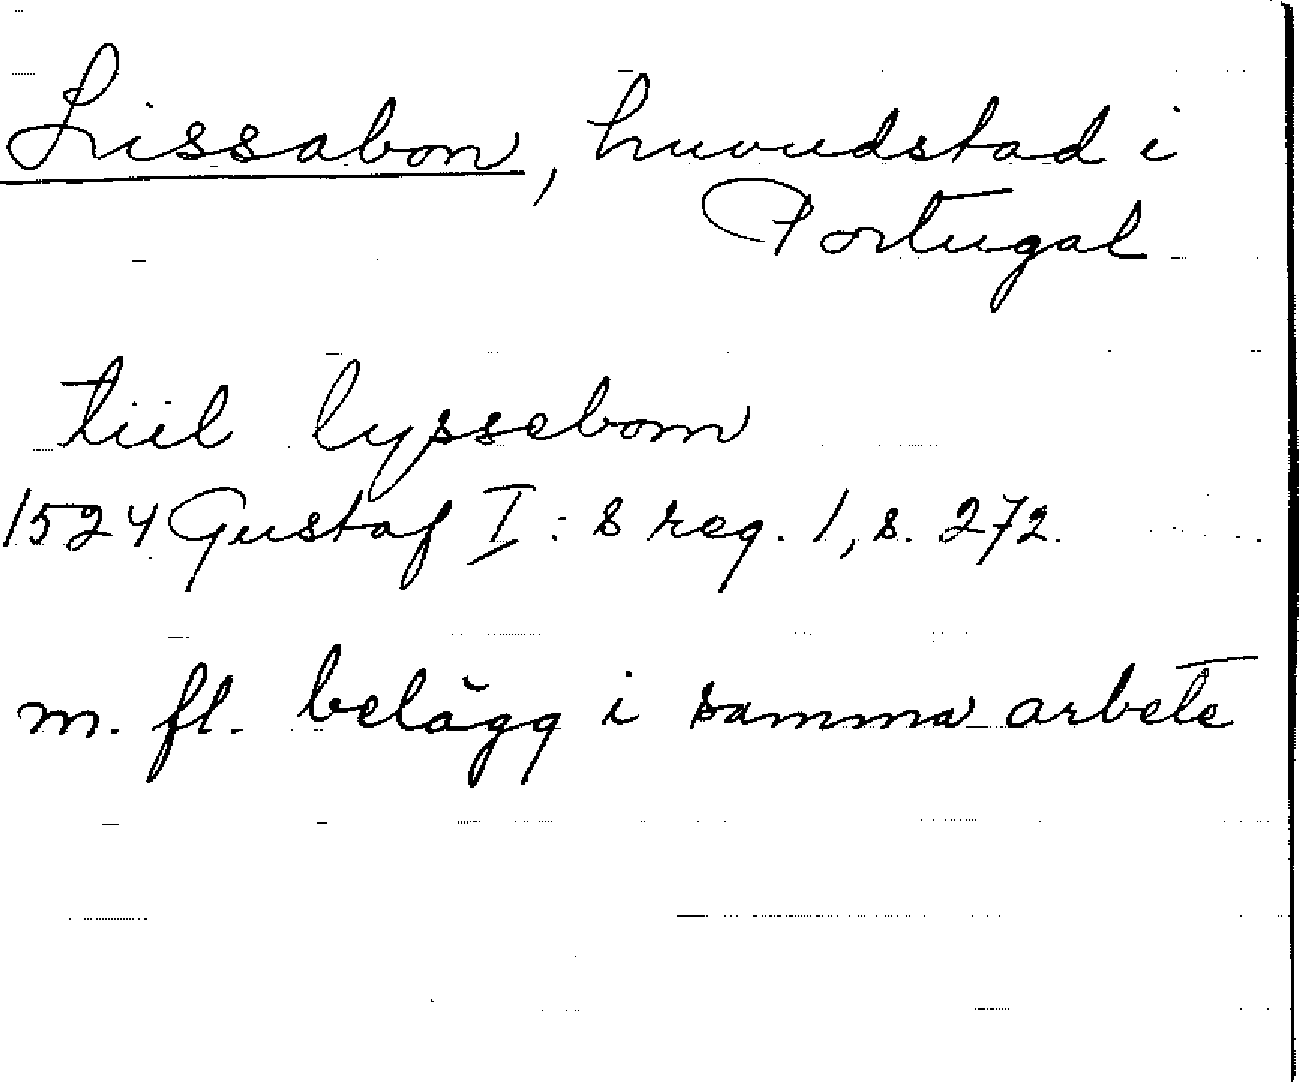 Lissabon, huvudstad i
Portugal
tiil lyssebom
1524 Gustaf I:s reg. 1, s. 272.
m. fl. belägg i samma arbete